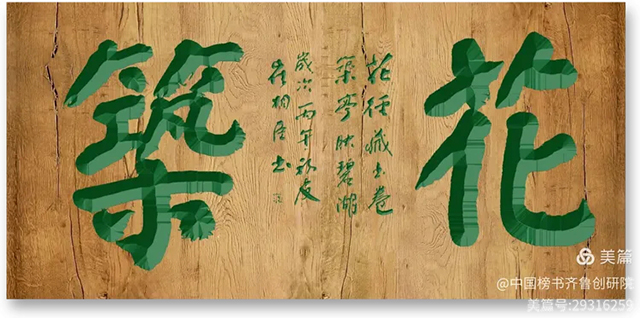 花
花径藏书卷
築亭映碧湖
歲次丙午
築
美篇
@中国榜书齐鲁创研院
美篇号:29316259